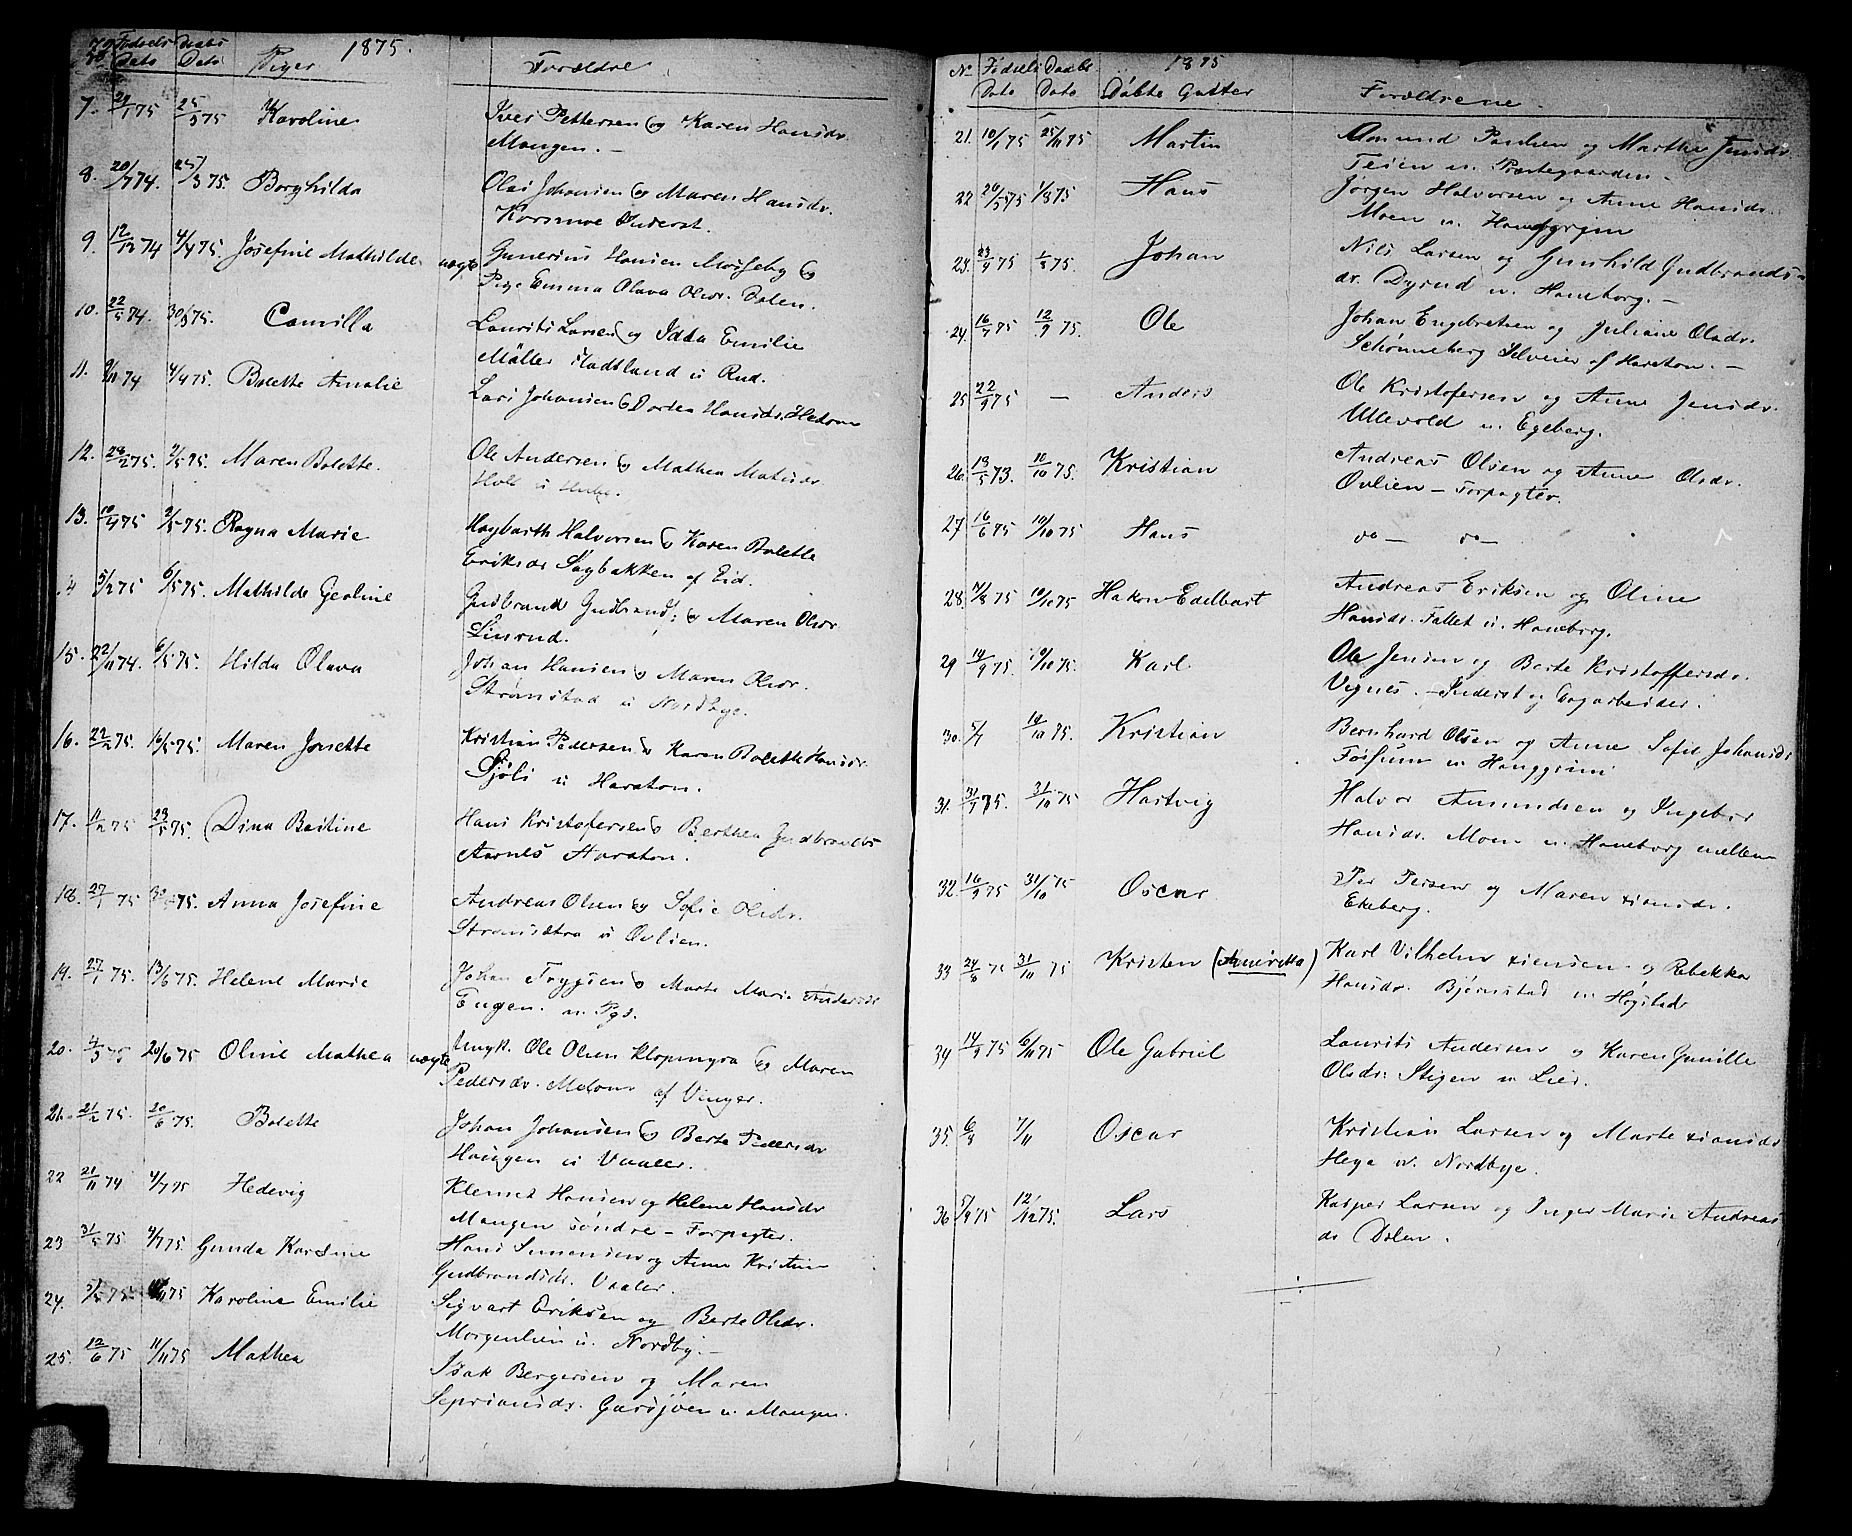 Fødsels Daabs 1875.
Dato Dato Piger Forældre
7. 24/1 75 25/3 75 Karoline Iver Pettersen og Karen Hansdr.
Mangen. —
8. 20/7 74. 25/3 75. Borghilda Olai Johansen og Maren Hansdr.
Korsmoe Inderst.
9. 12/12 74 4/4 75. Josefine Mathilde uægte Gunerius Hansen Morseby og
Pige Emma Olava Olsdr. Dalen.
10. 22/5 74. 30/3 75. Camilla Laurits Larsen og Idda Emilie
Møller Hadsland u Rud.
11. 9/11 74 4/4 75. Bolette Amalie Lars Johansen og Dortea Hansdr. Hedom
12. 28/2 75. 2/5 75. Maren Bolette. Ole Andersen og Mathea Matisdr
Holt u
13. 10/4 75 2/5 75. Ragna Marie Hagbarth Halvorsen og Karen Bolette
Eriksdr Sagbakken af Eid.
4 5/2 75 6/5 75. Mathilde Geoline Gudbrand Gudbrands: og Maren Olsdr.
Linrud.
15. 22/11 74. 6/5 75. Hilda Olava Johan Hansen og Maren Olsdr.
Strømstad u Nordbye.
16. 22/2 75. 16/5 75. Maren Josette Kristian Pedersen og Karen Bolette Hansdr.
Sjøli u Haraton.
17. 11/2 75 23/5 75. Dina Bastine Hans Kristofersen og Berthea Gudbrands
Aarnes Haraton.
18. 27/1 75 75. Anna Josefine Andreas Olsen og Sofie Olsdr.
Strømsætra u Ovlien.
19. 27/1 75. 13/6 75. Helene Marie Johan Trygsen og Marte Marie Andersdr
Engen. u. Pgd.
20. 4/3 75 20/6 75 Oline Mathea uægte Ungk. Ole Olsen Klopmyra og Maren
Pedersdr. Melom af Vinger.
21. 21/2 75. 20/6 75. Bolette Johan Johansen og Berte Pedersdr
Haugen u Vaaler.
22 21/11 74 4/7 75 Hedevig Klemet Hansen og Helene Hansdr
Mangen søndre — Forpagter.
23 31/5 75 4/7 75. Gunda Karsine Hans Simensen og Anne Kristine
Gudbrandsdr. Vaaler.
24. 3/5 75 11/11 75 Karoline Emilie Sigvart Eriksen og Berte Olsdr.
Morgenlien u. Nordby. —
25. 12/6 75 11/11 75 Mathea Isak Bergersen og Maren
Seprianisdr. Garsjøen u. Mangen.
N. Fødsels Daabs 1875
Dato Dato Døbte Gutter Forældrene —
21. 10/1 75 25/11 75 Martin Amund Paulsen og Marthe Jensdr.
Teien u. Præstegaarden —
22 20/5 75 1/8 75 Hans Jørgen Halvorsen og Anne Hansdr.
Moen u. Hanggrim
23. 23/4 75 1/8 75. Johan Nils Larsen og Gunhild Gudbrands-
dr. Dyrud u. Haneborg. —
24. 16/7 75 12/9 75. Ole Johan Engebretsen og Juliane Olsdr.
Schønneberg Selveier af Haraton. —
25 22/9 75 — Anders Ole Kristofersen og Anne Jensdr.
Ullevold u. Egeberg.
26. 13/5 73. 10/10 75. Kristian Andreas Olsen og Anne Olsdr.
Ovlien — Forpagter.
27 16/6 75 10/10 75 Hans do — do —
28. 7/8 75 10/10 75 Hakon Edelbart Andreas Eriksen og Oline
Hansdr. Fallet u. Haneborg.
29 14/9 75 10/10 75. Karl. Ole Jensen og Berte Kristoffersdr.
Vignes. — Inderst og Dagarbeider.
30. 5/7 14/10 75. Kristian Bernhard Olsen og Anne Sofie Johansdr
Fossum u Hanggrim
31. 31/7 75. 31/10 75 Hartvig Halvor Amundsen og Ingebor
Hansdr. Moen u. Haneborg mellem
32. 16/9 75 31/10 75 Oscar Per Persen og Maren xiansdr.
Ekeberg.
33 24/8 75 31/10 75 Kristen (Amerika) Karl Vilhelm xiensen og Rebekka
Hansdr. Bjørnstad u Høgstads
34 14/9 75 6/11 75 Ole Gabriel Laurits Andersen og Karen Gunille
Olsdr: Stigen u Lier.
35. 6/8 7/11 Oscar Kristian Larsen og Marte xiansdr
Heya u. Nordbye.
36 5/9 75 12/12 75. Lars Kasper Larsen og Inger Marie Andreas
dr Dølen.